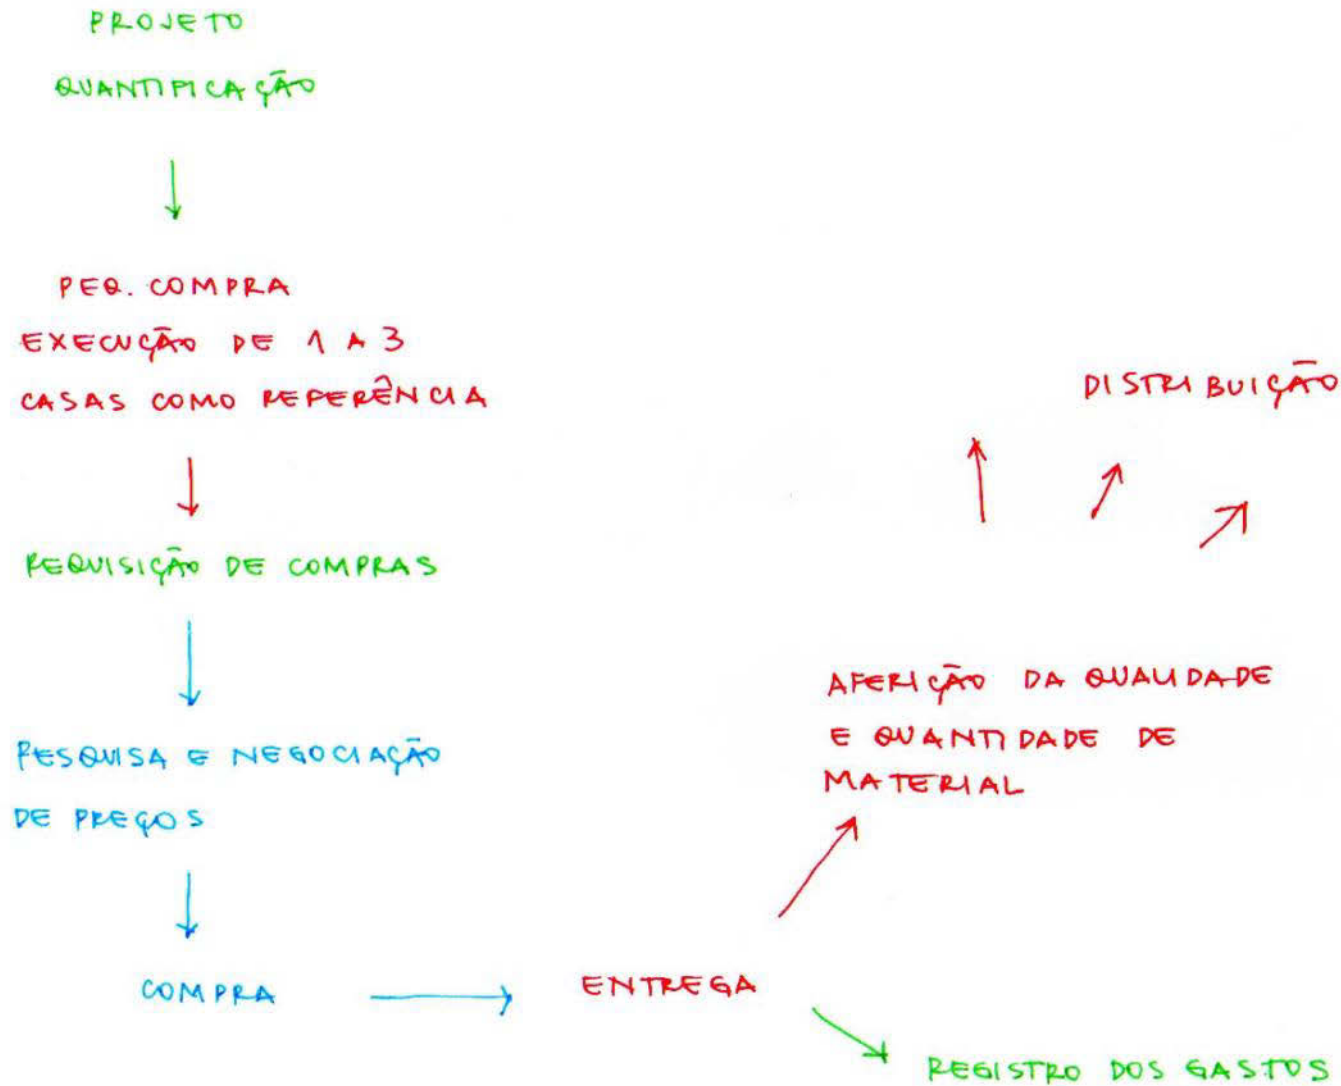 PROJETO
QUANTIFICAÇÃO
PEQ. COMPRA
EXECUÇÃO DE 1 A 3
CASAS COMO REFERÊNCIA
REQUISIÇÃO DE COMPRAS
PESQUISA E NEGOCIAÇÃO
DE PREÇOS
COMPRA
ENTREGA
AFERIÇÃO DA QUALIDADE
E QUANTIDADE DE
MATERIAL
DISTRIBUIÇÃO
REGISTRO DOS GASTOS